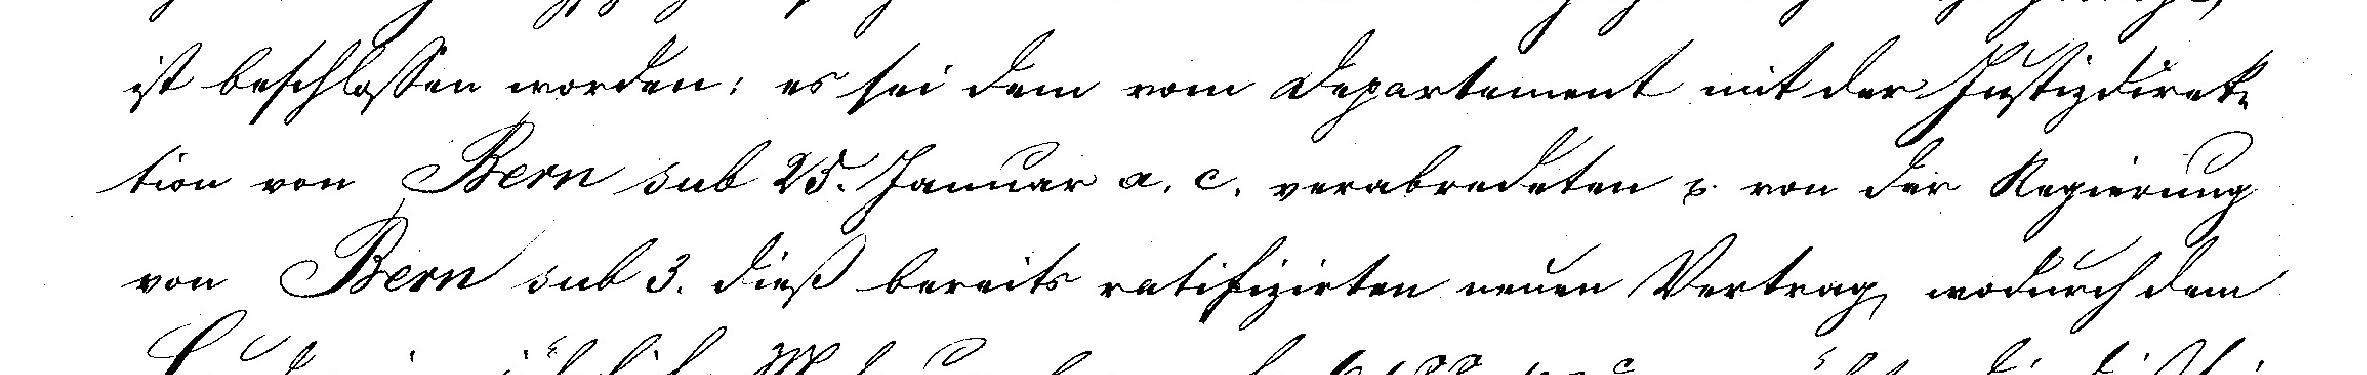 ist beschlossen worden: es sei dem vom Departement mit der Justizdirek-
tion von Bern sub 25. Januar a. c. verabredeten u. von der Regierung
von Bern sub 3. dieß bereits ratifizirten neuen Vertrag, wodurch dem